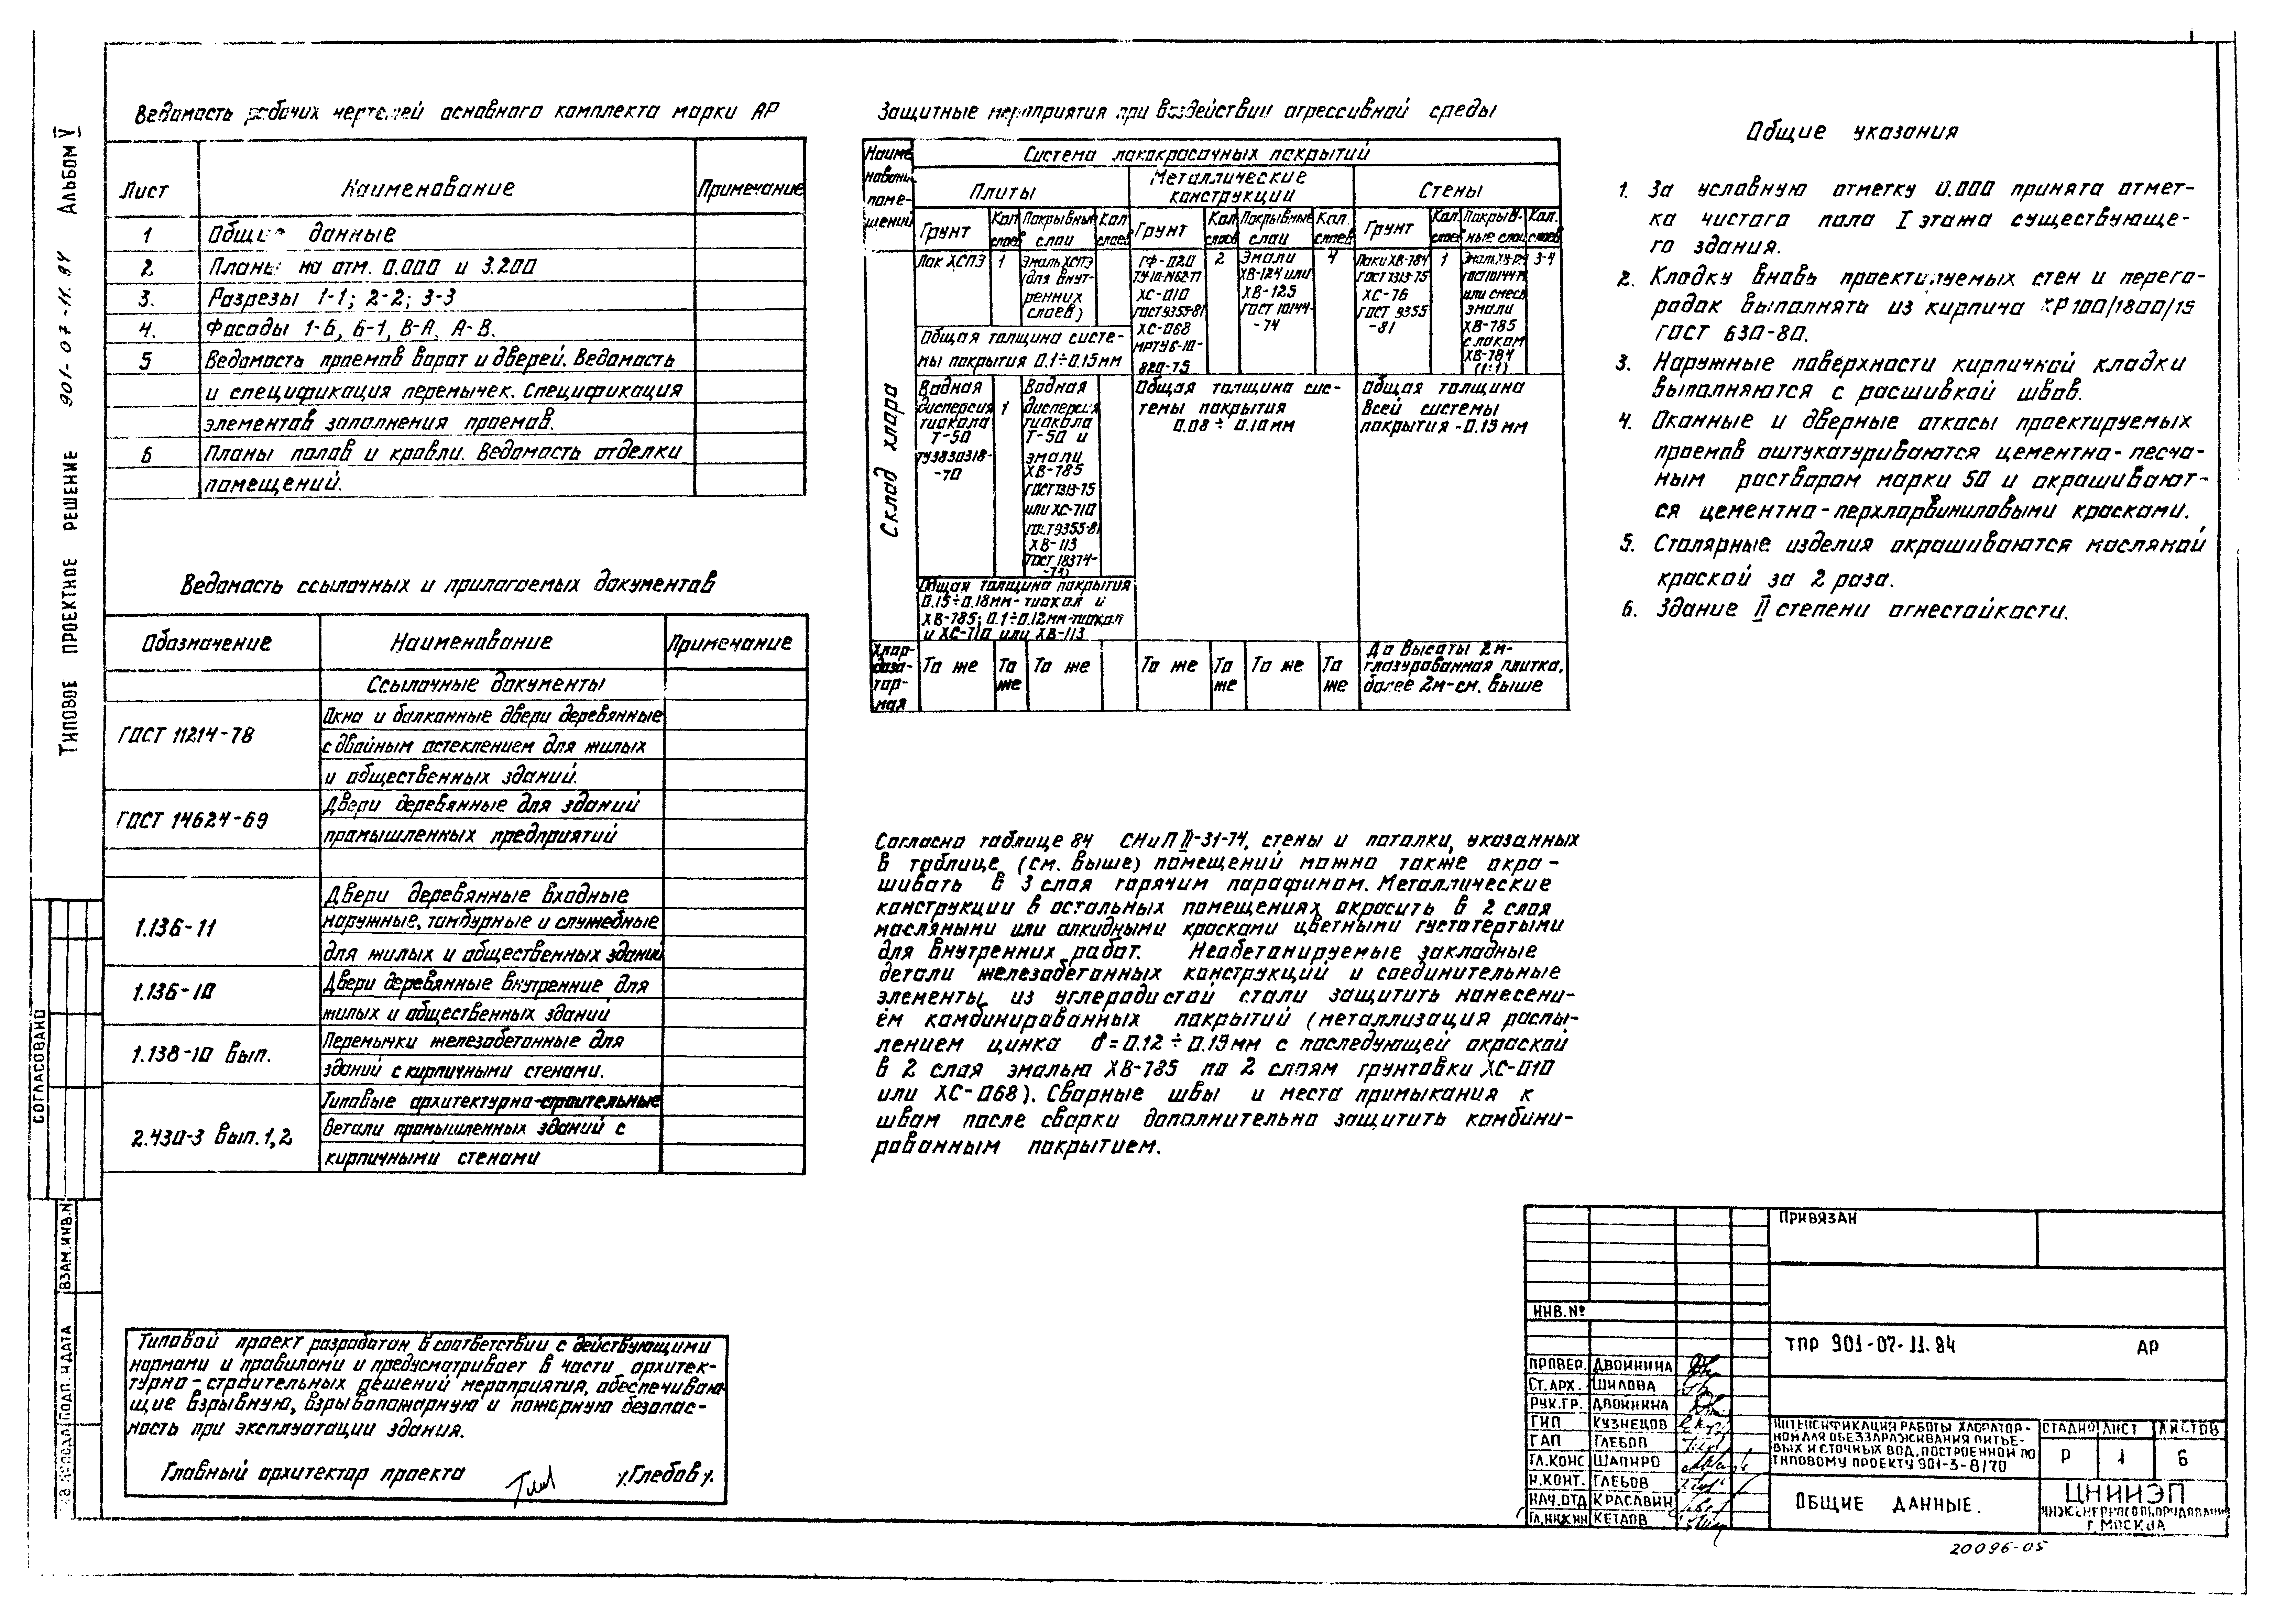 Типовое проектное решение 901-07-11.84 Альбом V
Ведомость рабочих чертежей основного комплекта марки АР
Лист Наименование Примечание
1 Общие данные
2 Планы на отм. 0.000 и 3.200
3. Разрезы 1-1; 2-2; 3-3
4. Фасады 1-6, 6-1, В-А, А-В.
5 Ведомость проемов ворот и дверей. Ведомость
и спецификация перемычек. Спецификация
элементов заполнения проемов.
6 Планы полов и кровли. Ведомость отделки
помещений.
Ведомость ссылочных и прилагаемых документов
Обозначение Наименование Примечание
Ссылочные документы
ГОСТ 11214-78
Окна и балконные двери деревянные
с двойным остеклением для жилых
и общественных зданий.
ГОСТ 14624-69
Двери деревянные для зданий
промышленных предприятий
1.136-11
Двери деревянные входные
наружные, тамбурные и служебные
для жилых и общественных зданий
1.136-10
Двери деревянные внутренние для
жилых и общественных зданий
1.138-10 вып.
Перемычки железобетонные для
зданий с кирпичными стенами.
2.430-3 вып. 1,2
Типовые архитектурно-строительные
детали промышленных зданий с
кирпичными стенами
Типовой проект разработан в соответствии с действующими
нормами и правилами и предусматривает в части архитек-
турно-строительных решений мероприятия, обеспечиваю
щие взрывную, взрывопожарную и пожарную безопас-
ность при эксплуатации здания.
Главный архитектор проекта /Глебов/
Защитные мероприятия при воздействии агрессивной среды
Наиме
новани
поме-
щений
Система лакокрасочных покрытий
Плиты
Металлические
конструкции
Стены
Грунт
Кол
слоев
Покрывные
слои
Кол.
слоев
Грунт
Кол
слоев
Покрывные
слои
Кол.
слоев
Грунт
Кол.
слоев
Покрыв-
ные слои
Кол.
слоев
Склад хлора
Лак ХСПЭ
1
Эмаль ХСПЭ
(для внут-
ренних
слоев)
Общая толщина систе-
мы покрытия 0.1÷0.15мм
ГФ-020
ХС-010
ГОСТ 9355-81
ХС-068
МРТУ6-10-
820-75
2
Эмали
ХВ-124 или
ХВ-125
ГОСТ 10144-
-74
4
Лаки ХВ-784
ГОСТ 7313-75
ХС-76
ГОСТ 9355
-81
1
или смесь
эмали
ХВ-785
с лаком
ХВ-784
(1:1)
3-4
Водная
дисперсия
тиокола
Т-50
ТУ3830318-
-70
1
Водная
дисперсия
тиокола
Т-50 и
эмали
ХВ-785
ГОСТ 7313-75
или ХС-710
ГОСТ 9355-81
ХВ-113
ГОСТ 18374-
-73)
Общая толщина сис-
темы покрытия
0.08 ÷ 0.10мм
Общая толщина
всей системы
покрытия -0.15мм
Общая толщина покрытия
0.15÷0.18мм-тиокол и
ХВ-785; 0.1÷0.12мм-тиокол
и ХС-710 или ХВ-113
Хлор-
доза-
тор-
ная
То же
То же
То же
То же
То же
То же
То же
До высоты 2м-
глазурованная плитка,
более 2м-см. выше
Согласно таблице 84 СНиП II-31-74, стены и потолки, указанных
в таблице (см. выше) помещений можно также окра-
шивать в 3 слоя горячим парафином. Металлические
конструкции в остальных помещениях окрасить в 2 слоя
масляными или алкидными красками цветными густотертыми
для внутренних работ. Необетонируемые закладные
детали железобетонных конструкций и соединительные
элементы из углеродистой стали защитить нанесени-
ем комбинированных покрытий (металлизация распы-
лением цинка δ=0.12÷0.15мм с последующей окраской
в 2 слоя эмалью ХВ-785 по 2 слоям грунтовки ХС-010
или ХС-068). Сварные швы и места примыкания к
швам после сварки дополнительно защитить комбини-
рованным покрытием.
Общие указания
1. За условную отметку 0.000 принята отмет-
ка чистого пола I этажа существующе-
го здания.
2. Кладку вновь проектируемых стен и перего-
родок выполнять из кирпича КР100/1800/15
ГОСТ 530-80.
3. Наружные поверхности кирпичной кладки
выполняются с расшивкой швов.
4. Оконные и дверные откосы проектируемых
проемов оштукатуриваются цементно-песча-
ным раствором марки 50 и окрашивают-
ся цементно-перхлорвиниловыми красками.
5. Столярные изделия окрашиваются масляной
краской за 2 раза.
6. Здание II степени огнестойкости.
СОГЛАСОВАНО
ВЗАМ.ИНВ.N
ПОДП. И ДАТА
ПРИВЯЗАН
ИНВ.№
ТПР 901-07-11.84 АР
ПРОВЕР. ДВОЙНИНА
СТ.АРХ. ШИЛОВА
РУК.ГР. ДВОЙНИНА
ГИП КУЗНЕЦОВ
ГАП ГЛЕБОВ
ГЛ.КОНС ШАПИРО
Н.КОНТ. ГЛЕБОВ
НАЧ.ОТД КРАСАВИН
ГЛ.ИНЖ.ИН КЕТАОВ
ИНТЕНСИФИКАЦИЯ РАБОТЫ ХЛОРАТОР-
НОЙ ДЛЯ ОБЕЗЗАРАЖИВАНИЯ ПИТЬЕ-
ВЫХ И СТОЧНЫХ ВОД, ПОСТРОЕННОЙ ПО
ТИПОВОМУ ПРОЕКТУ 901-3-8/70
СТАДИЯ ЛИСТ ЛИСТОВ
Р 1 6
ОБЩИЕ ДАННЫЕ.
ЦНИИЭП
ИНЖЕНЕРНОГО ОБОРУДОВАНИЯ
Г. МОСКВА
20096-05